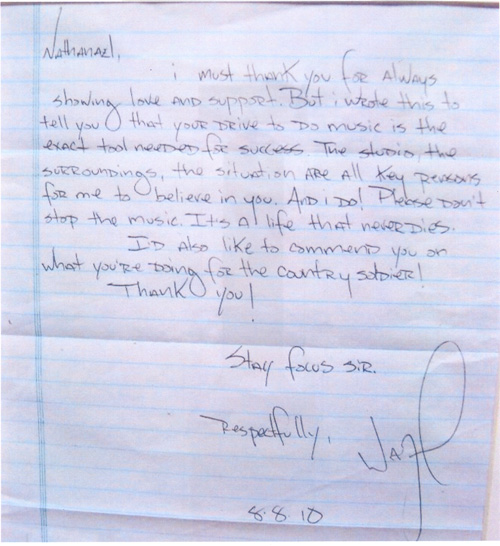 Nathanael,
i must thank you for always
showing love and support. But i wrote this to
tell you that your drive to do music is the
exact tool needed for success. The studio, the
surroundings, the situation are all key reasons
for me to believe in you. And i do! Please don't
stop the music. It's a life that never dies.
I'd also like to commend you on
what you're doing for the country soldier!
Thank you!
Stay focus sir.
Respectfully,
Ja
8.8.10